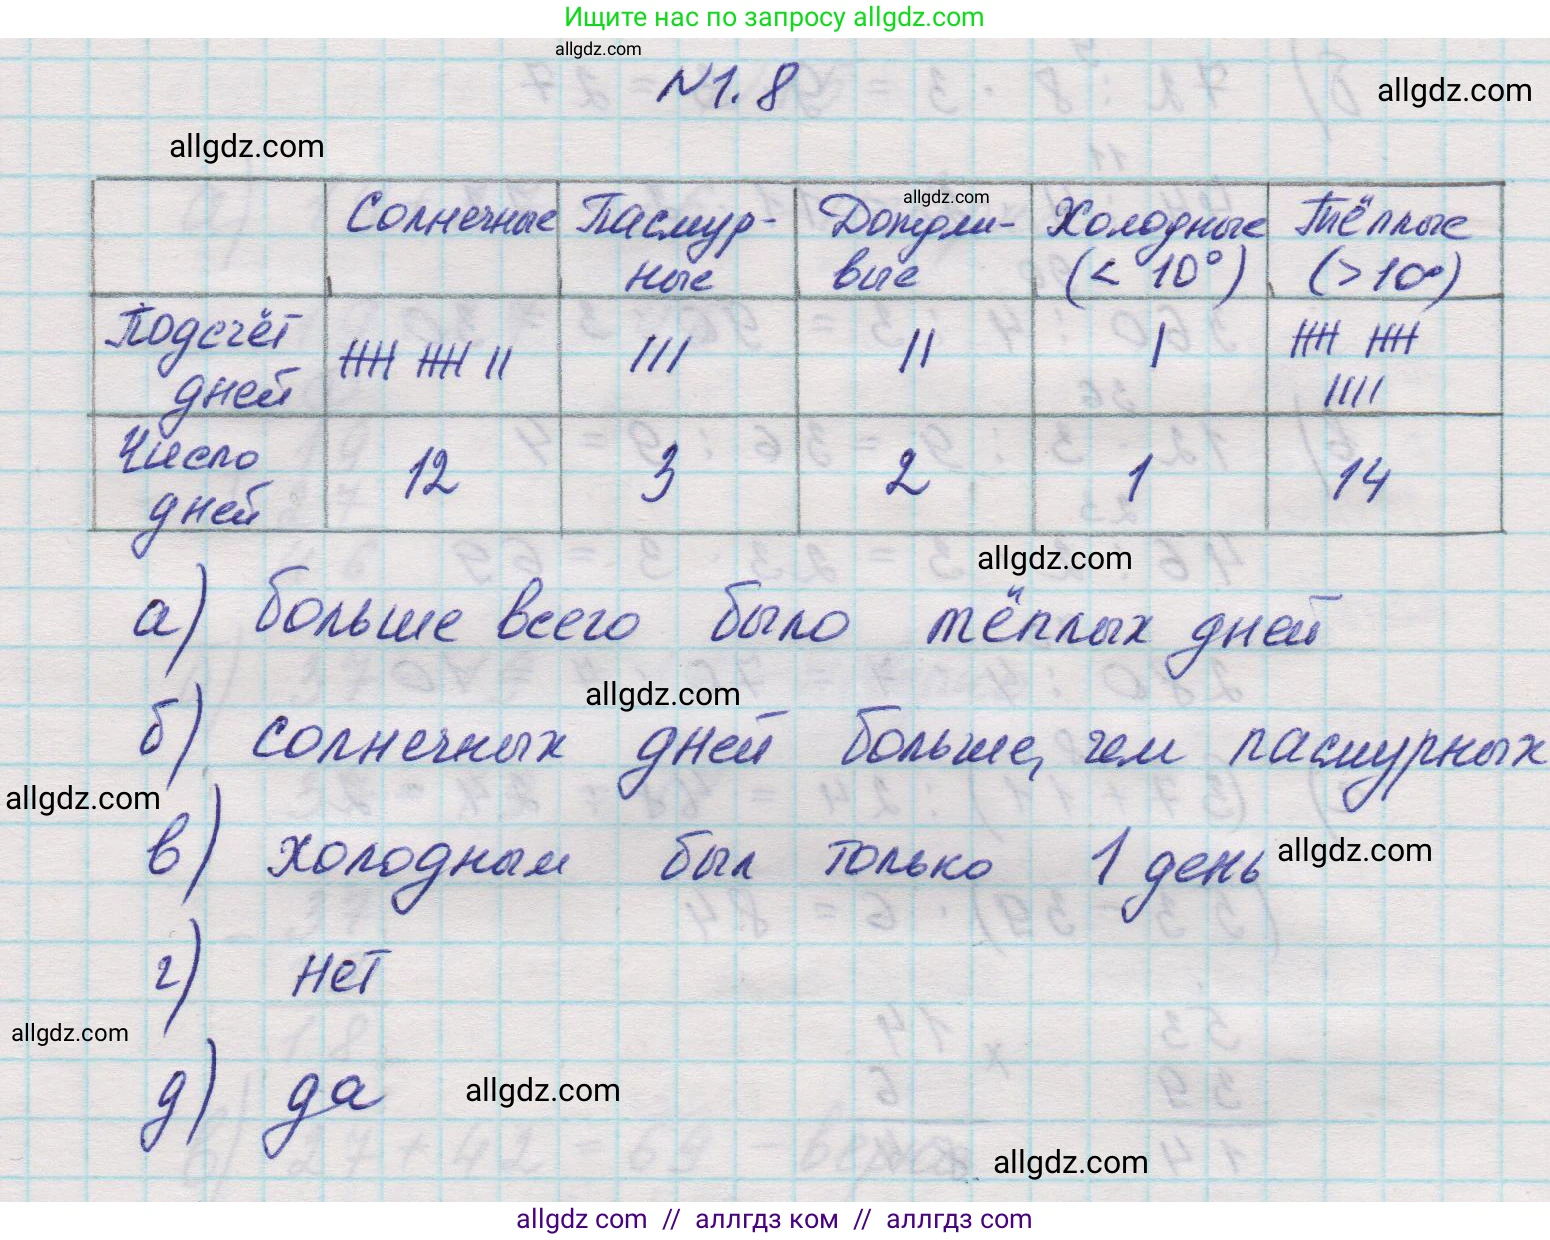 Ищите нас по запросу allgdz.com
allgdz.com
№1.8
allgdz.com
allgdz.com
Солнечные Пасмур- Дождли- Холодные Тёплые
allgdz.com
ные вые (< 10°) (>10°)
Подсчёт
дней
Число 12 3 2 1 14
дней
allgdz.com
а) больше всего было тёплых дней
allgdz.com
б) солнечных дней больше, чем пасмурных
allgdz.com
в) холодным был только 1 день
allgdz.com
г) нет
allgdz.com
д) да
allgdz.com
allgdz.com
allgdz com // аллгдз ком // аллгдз com